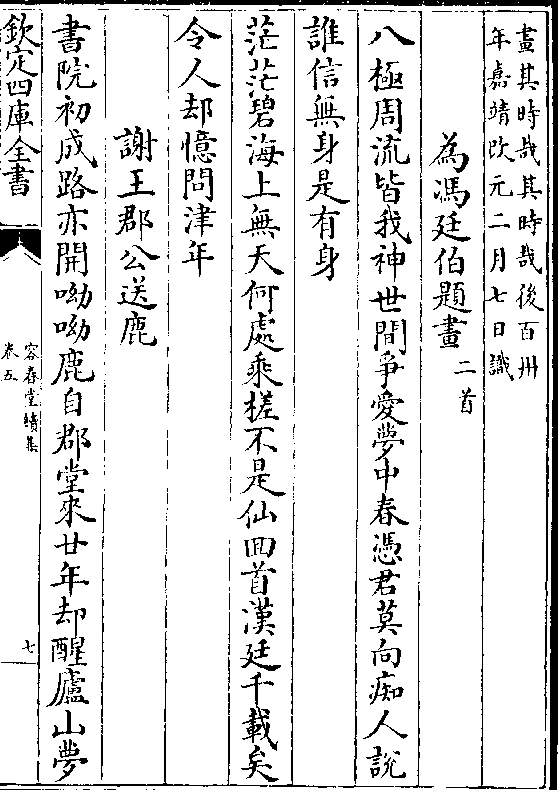 畫其時哉其時哉後百卅
年嘉靖改元二月七日識
為馮廷伯題畫二首
八極周流皆我神世間爭愛夢中春憑君莫向痴人說
誰信無身是有身
茫茫碧海上無天何處乘槎不是仙回首漢廷千載矣
令人却憶問津年
謝王郡公送鹿
書院初成路亦開呦呦鹿自郡堂來廿年却醒廬山夢
欽定四庫全書
容春堂續集
卷五
七